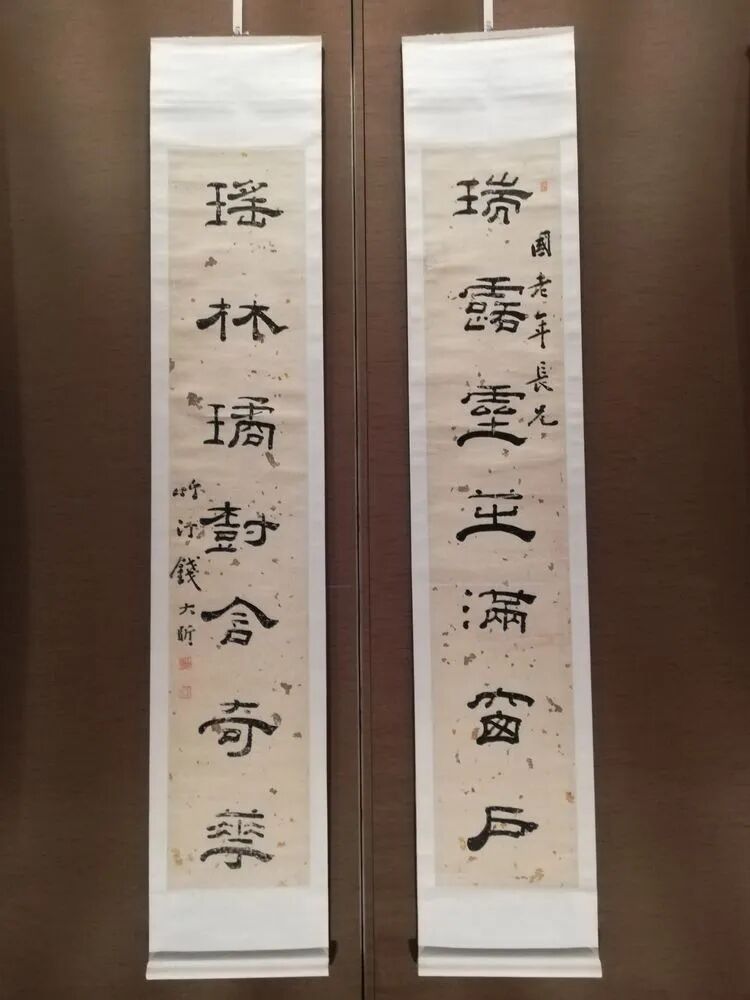 國老年長兄
瑞露靈芝滿窗戶
瑤林璚樹含奇華
竹汀錢大昕